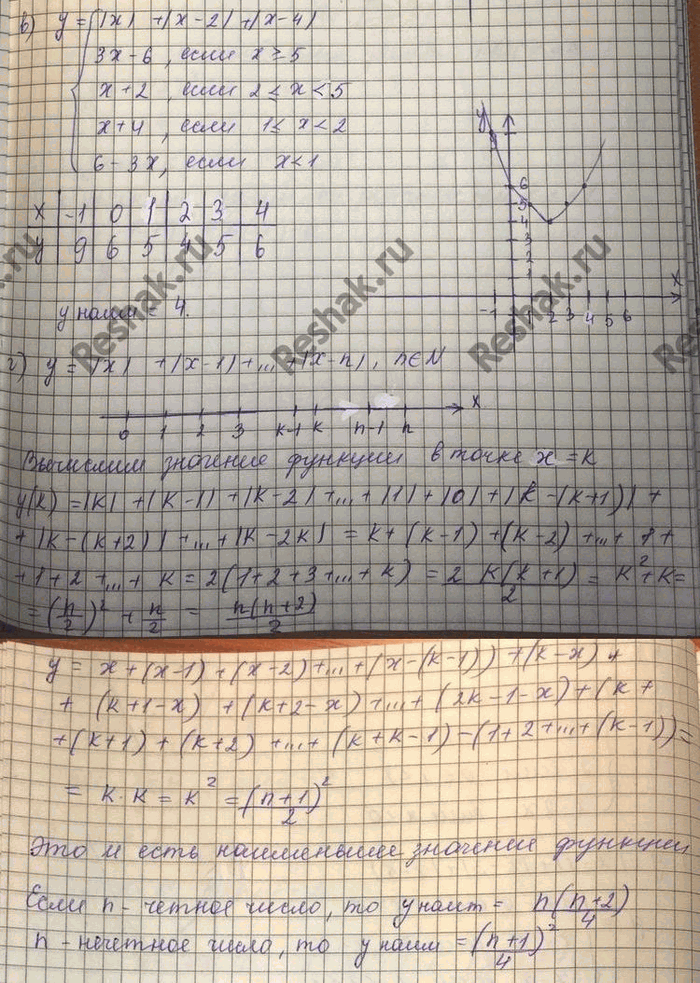 в) y = |x| + |x-2| + |x-4|
3x-6, если x ≥ 5
x+2, если 2 ≤ x < 5
x+4, если 1 ≤ x < 2
6-3x, если x < 1
x | -1 | 0 | 1 | 2 | 3 | 4
y | 9 | 6 | 5 | 4 | 5 | 6
y наим = 4.
y
6
5
4
3
2
1
x
-1 1 2 3 4 5 6
г) y = |x| + |x-1| + ... + |x-n|, n∈N
0 1 2 3 k-1 k n-1 n x
Вычислим значение функции в точке x = k
y(k) = |k| + |k-1| + |k-2| + ... + |1| + |0| + |k-(k+1)| +
+ |k-(k+2)| + ... + |k-2k| = k + (k-1) + (k-2) + ... + 1 +
+ 1 + 2 + ... + k = 2(1+2+3+...+k) = 2 k(k+1)/2 = k² + k =
= (n/2)² + n/2 = n(n+2)/2
y = x + (x-1) + (x-2) + ... + (x-(k-1)) + (k-x) +
+ (k+1-x) + (k+2-x) + ... + (2k-1-x) + (k+
+(k+1) + (k+2) + ... + (k+k-1) - (1+2+...+(k-1)) =
= k·k = k² = (n+1/2)²
Это и есть наименьшее значение функции
Если n - четное число, то y наим = n(n+2)/4
n - нечетное число, то y наим = (n+1)²/4
Reshak.ru
Reshak.ru
Reshak.ru